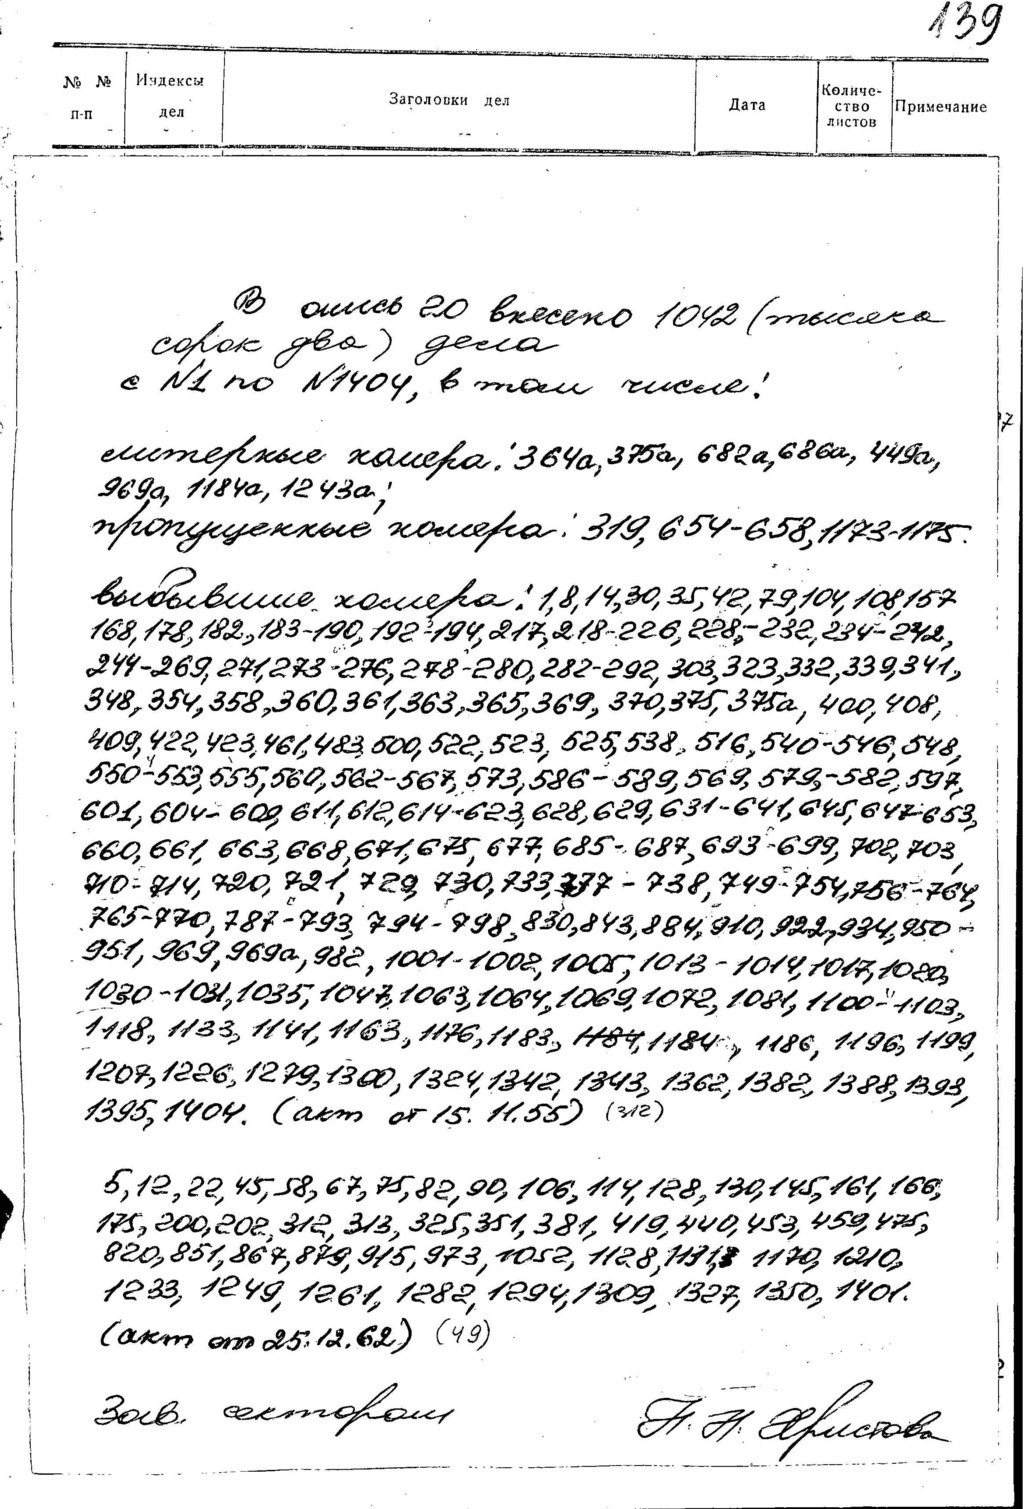 139
№ № Индексы Заголовки дел Дата Количе- Примечание
п-п дел ство
листов
В опись 20 внесено 1042 (тысяча
сорок два) дела
с №1 по №1404, в том числе:
литерные номера: 364а, 375а, 682а, 686а, 449а,
969а, 1184а, 1243а;
пропущенные номера: 319, 654-658, 1173-1175.
выбывшие номера: 1, 8, 14, 30, 35, 42, 79, 104, 108, 157
168, 178, 182, 183-190, 192-194, 217, 218-226, 228,-232, 234-242,
244-269, 271, 273-276, 278-280, 282-292, 303, 323, 332, 339, 341,
348, 354, 358, 360, 361, 363, 365, 369, 370, 375, 375а, 400, 408,
409, 422, 423, 461, 483, 500, 522, 523, 525, 538, 516, 540-546, 548,
550-553, 555, 560, 562-567, 573, 586-589, 569, 579,-582, 597,
601, 604-609, 611, 612, 614-623, 628, 629, 631-641, 645, 647-653,
660, 661, 663, 668, 671, 675, 677, 685-687, 693-699, 702, 703,
710-714, 720, 721, 729, 730, 733, 737-738, 749-754, 756-764,
765-770, 787-793, 794-798, 830, 843, 884, 910, 922, 934, 950-
951, 969, 969а, 982, 1001-1002, 1005, 1013-1014, 1017, 1020,
1030-1031, 1035, 1047, 1063, 1064, 1069, 1072, 1081, 1100-1103,
1118, 1133, 1141, 1163, 1176, 1183, 1184, 1184, 1186, 1196, 1199,
1207, 1226, 1279, 1300, 1324, 1342, 1343, 1362, 1382, 1388, 1393,
1395, 1404. (акт от 15.11.55) (312)
5, 12, 22, 45, 58, 67, 75, 82, 90, 106, 114, 128, 130, 145, 161, 166,
175, 200, 202, 312, 313, 325, 351, 381, 419, 440, 453, 459, 475,
820, 851, 867, 879, 915, 973, 1052, 1128, 1131, 1170, 1210,
1233, 1249, 1261, 1282, 1294, 1309, 1327, 1350, 1401.
(акт от 25.12.62) (49)
Зав. сектором Н. Христова